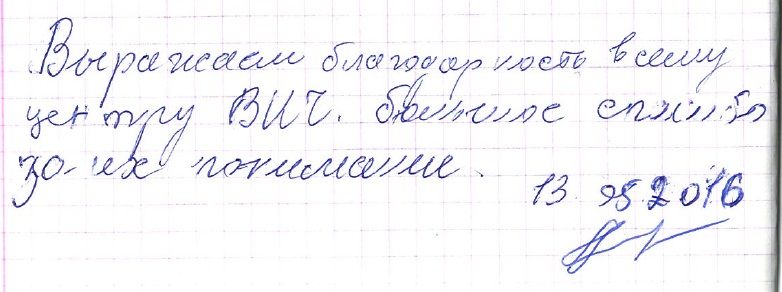 Выражаем благодарность всему
центру ВИЧ. большое спасибо
за их понимание.
13 05 2016